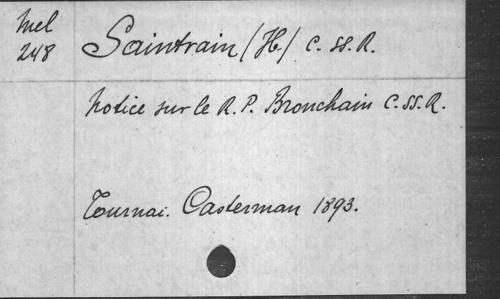 Mel
248
Saintrain (H.) C. SS. R.
Notice sur le R. P. Bronchain C. SS. R.
Tournai. Casterman 1893.